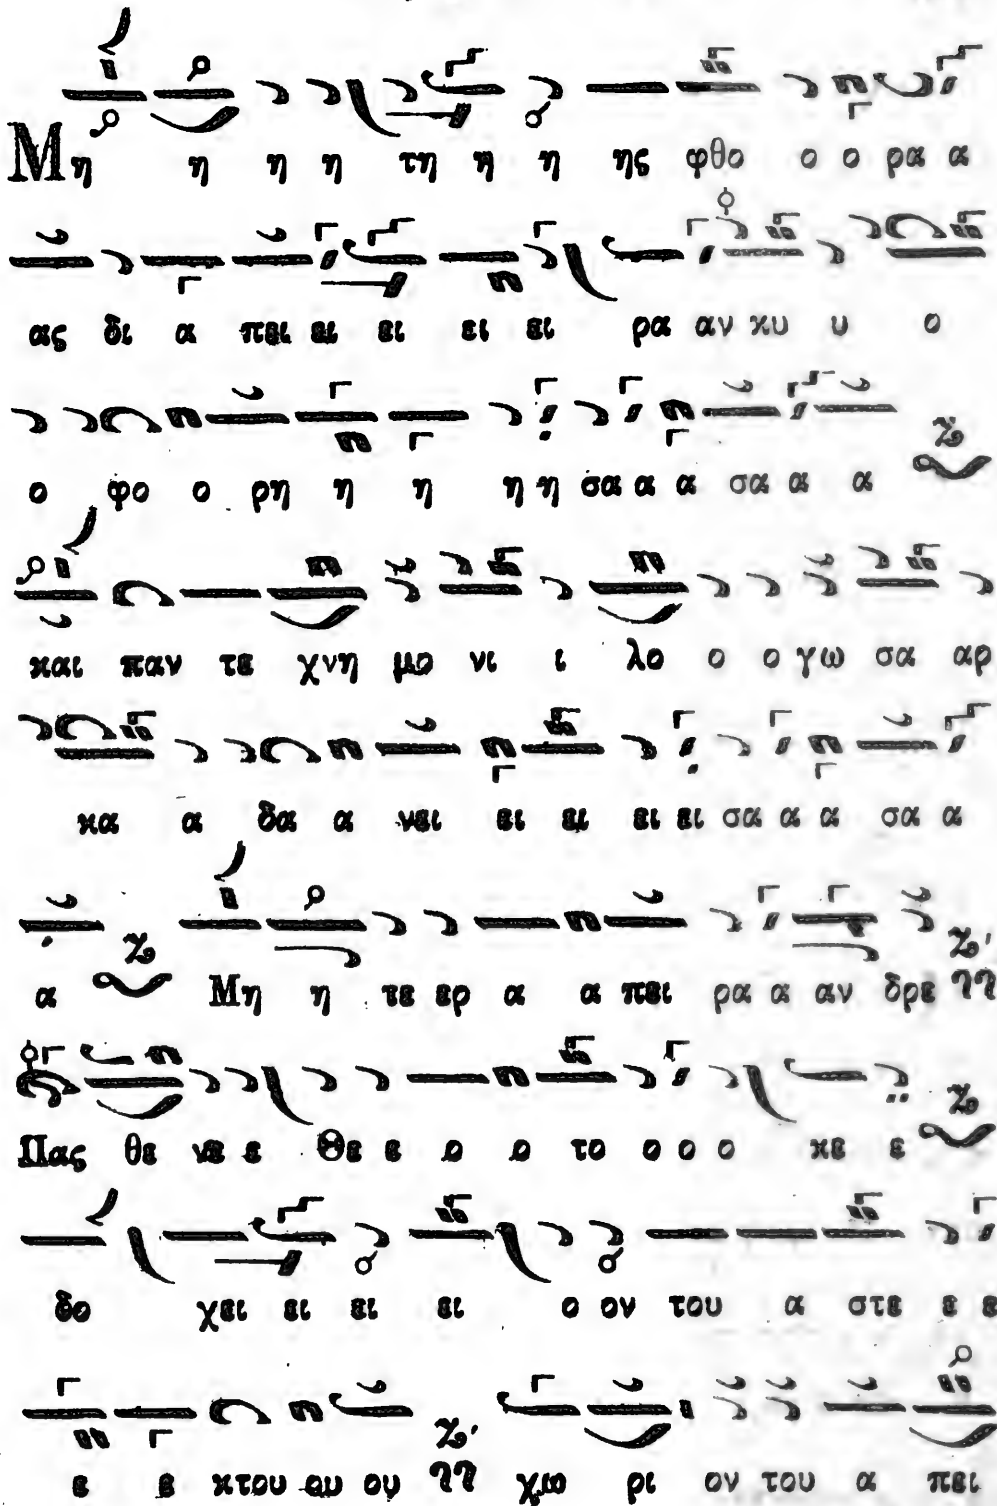 Μη η η η τη η η ης φθο ο ο ρα α
ας δι α πει ει ει ει ει ρα αν κυ υ ο
ο φο ο ρη η η η η σα α α σα α α
και παν τε χνη μο νι ι λο ο ο γω σα αρ
κα α δα α νει ει ει ει ει σα α α σα α
α Μη η τε ερ α α πει ρα α αν δρε
Πας θε νε ε Θε ε ο ο το ο ο ο κε ε
δο χει ει ει ει ο ον του α στε ε ε
ε ε κτου ου ου χω ρι ον του α πει